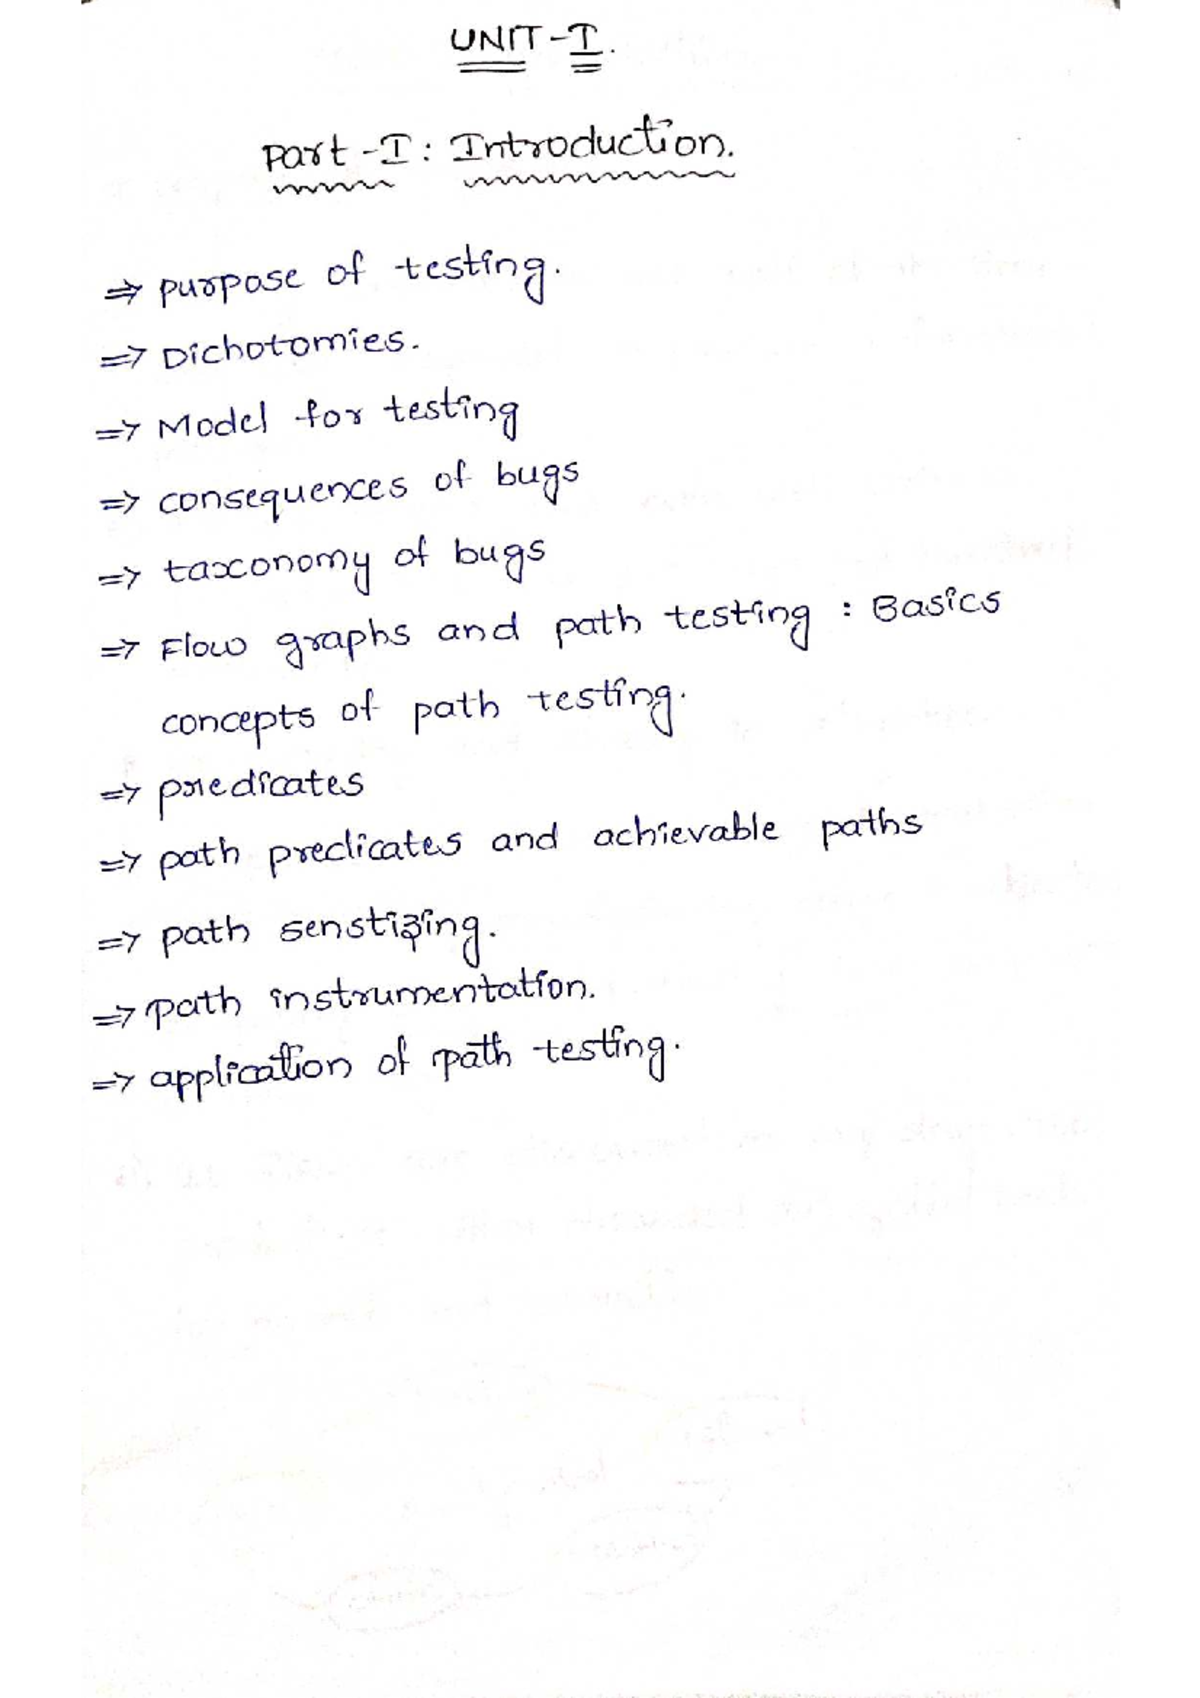 UNIT-I.
Part-I: Introduction.
⇒ purpose of testing.
⇒ Dichotomies.
⇒ Model for testing
⇒ consequences of bugs
⇒ taxconomy of bugs
⇒ Flow graphs and path testing : Basics
concepts of path testing.
⇒ predicates
⇒ path predicates and achievable paths
⇒ path senstizing.
⇒ path instrumentation.
⇒ application of path testing.